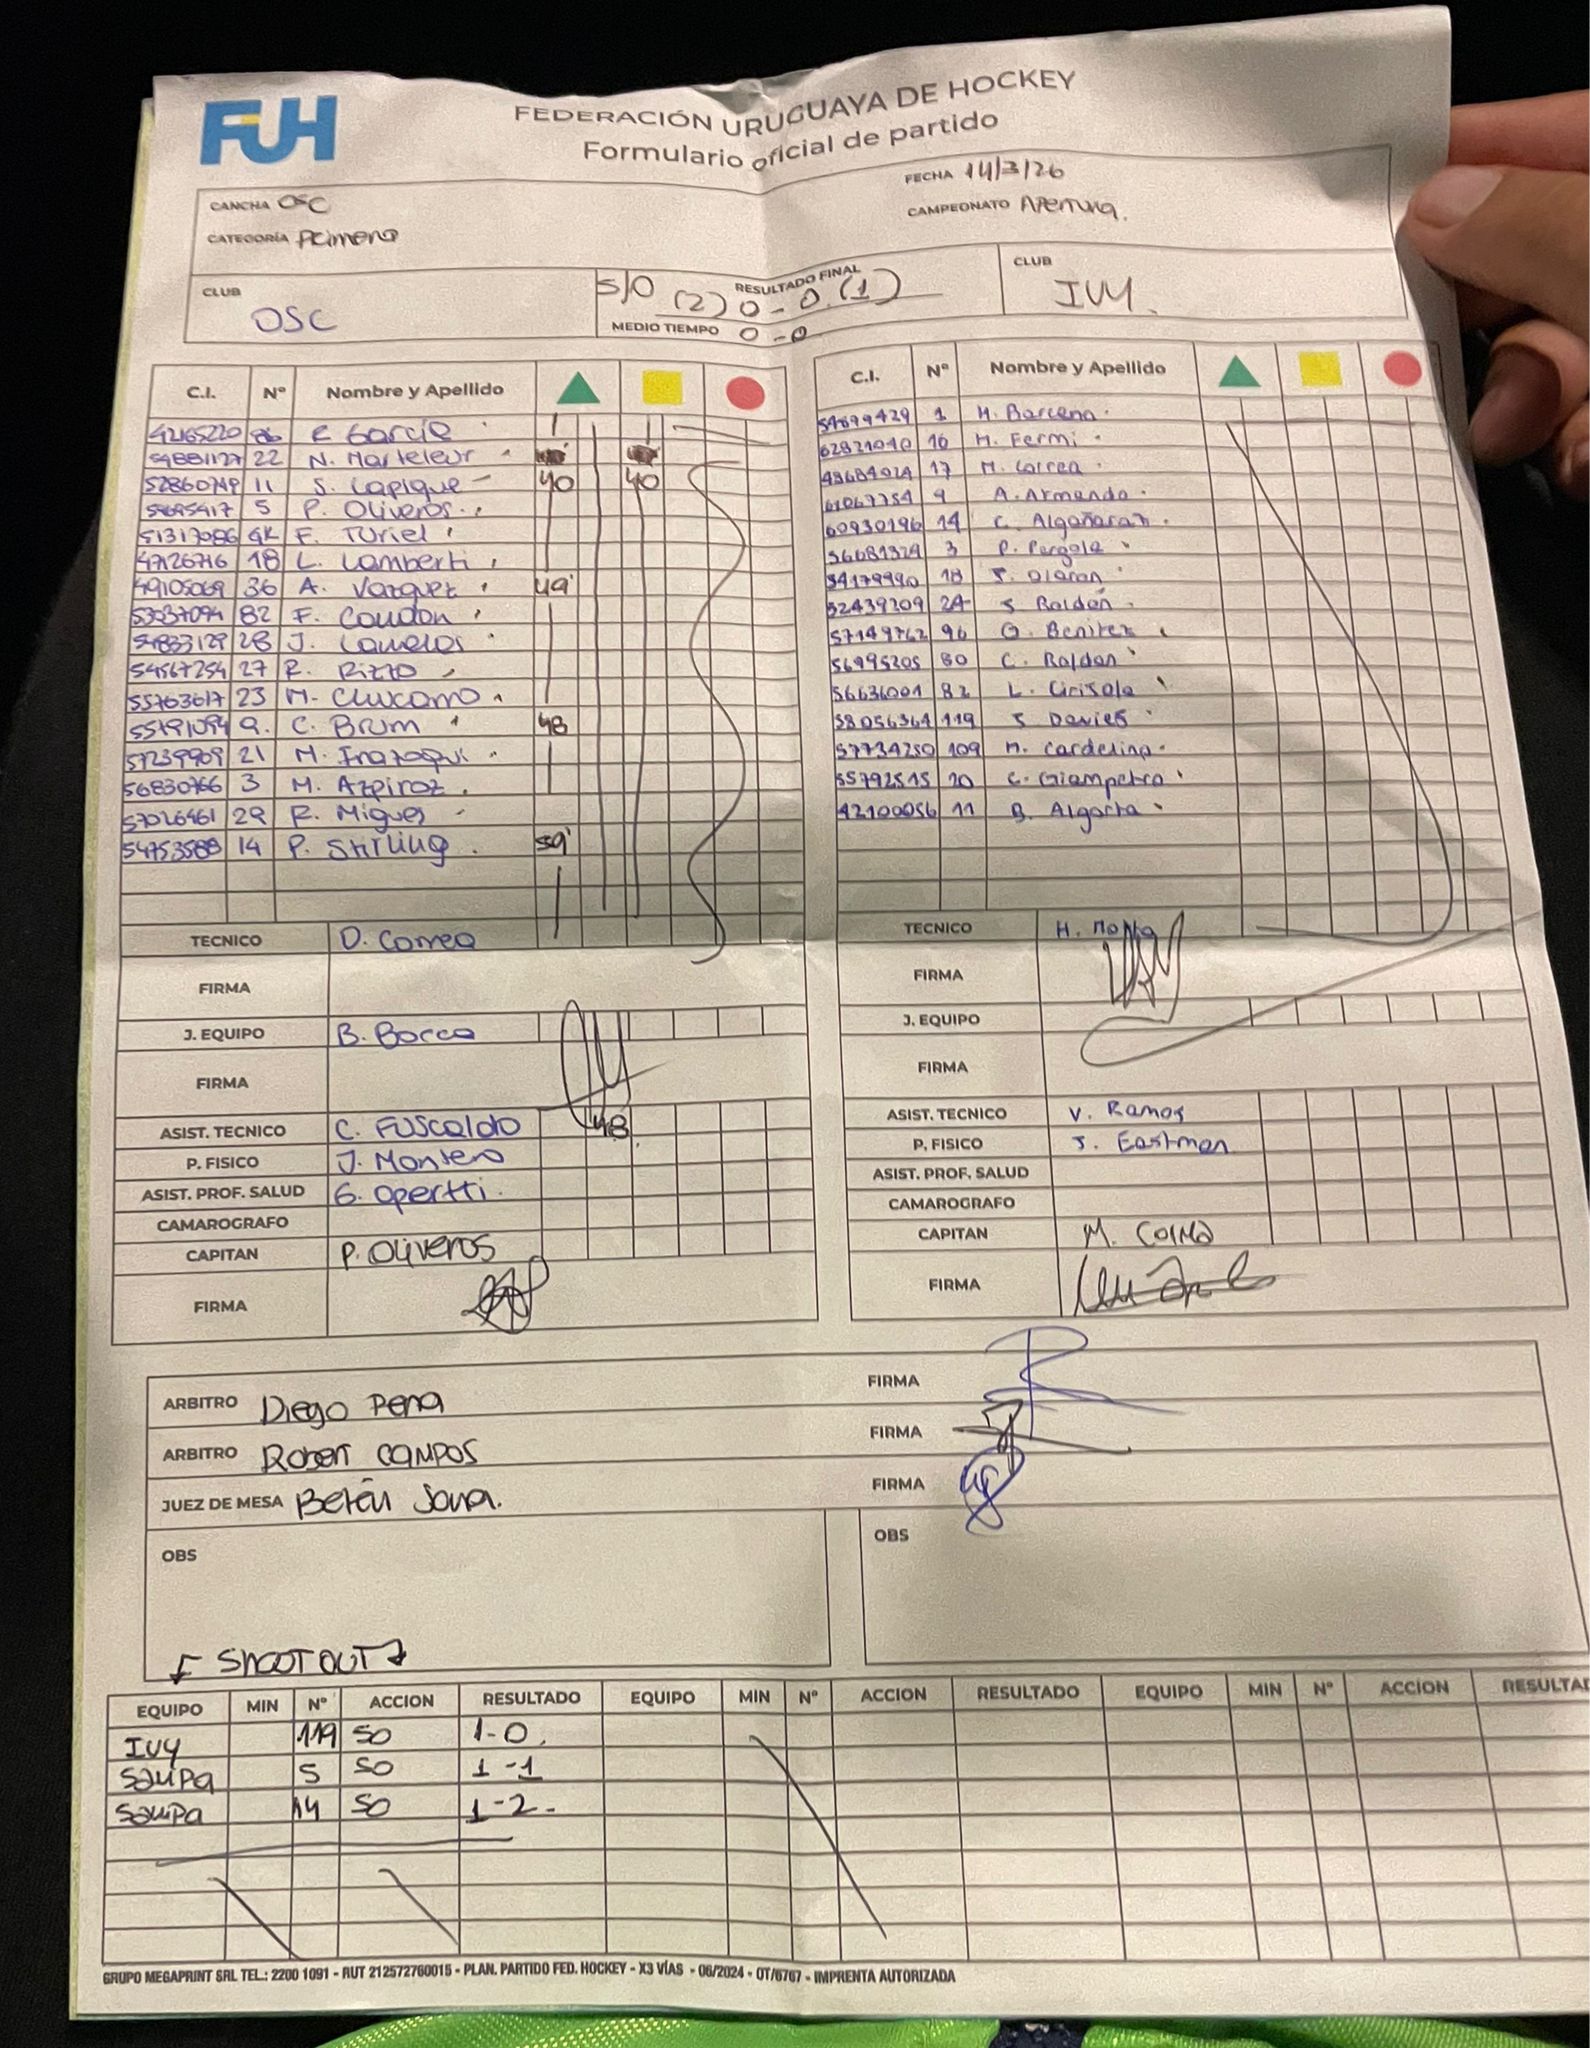 FUH
FEDERACIÓN URUGUAYA DE HOCKEY
Formulario oficial de partido
CANCHA OSC
FECHA 14/3/26
CATEGORÍA Primera
CAMPEONATO Apertura.
CLUB OSC
S/O RESULTADO FINAL (2) 0 - 0 (1)
MEDIO TIEMPO 0 - 0
CLUB IVY.
C.I. Nº Nombre y Apellido
42165220 86 Garcia
54881127 22 N. Marteleur
52860749 11 S. Lapique 40 40
5 P. Oliveros
51317086 GK F. Turiel
47126716 18 L. Lamberti
49105069 36 A. Vazquez 49'
82 F. Coudon
28 J.
54567254 27 R. Rizzo
55763617 23 M.
9. C. Brum 48
57239909 21 M.
56830766 3 M. Azpiroz
57026461 29 R. Migues
54753588 14 P. Stirling 59'
TECNICO D. Correa
FIRMA
J. EQUIPO B. Bocca
FIRMA
ASIST. TECNICO C. Fuscaldo 48
P. FISICO J. Montero
ASIST. PROF. SALUD G. Opertti.
CAMAROGRAFO
CAPITAN P. Oliveros
FIRMA
C.I. Nº Nombre y Apellido
54899429 1 M. Barcena
62821040 16 M. Fermi
49684024 17 M. Correa
9 A. Armando
60930196 14 C. Algañaraz
56681324 3 P. Pergola
54179990 18
52439209 24 S. Baldon
57149762 96 G. Benitez
56995205 80 C. Baldon
56636001 82 L. Cirisola
58056364 119 S. Davies
57734250 109 M. Cardelino
55792515 20 C. Giampetro
42100056 11 B. Algorta
TECNICO
FIRMA
J. EQUIPO
FIRMA
ASIST. TECNICO V. Ramos
P. FISICO J. Eastman
ASIST. PROF. SALUD
CAMAROGRAFO
CAPITAN M.
FIRMA
ARBITRO Diego Pena FIRMA
ARBITRO Robert Campos FIRMA
JUEZ DE MESA Belén FIRMA
OBS
OBS
SHOOT OUT
EQUIPO MIN Nº ACCION RESULTADO EQUIPO MIN Nº ACCION RESULTADO EQUIPO MIN Nº ACCIÓN
IVY 119 SO 1-0.
5 SO 1-1
14 SO 1-2.
GRUPO MEGAPRINT SRL TEL.: 2200 1091 - RUT 212572760015 - PLAN. PARTIDO FED. HOCKEY - X3 VÍAS - 06/2024 - OT/6767 - IMPRENTA AUTORIZADA